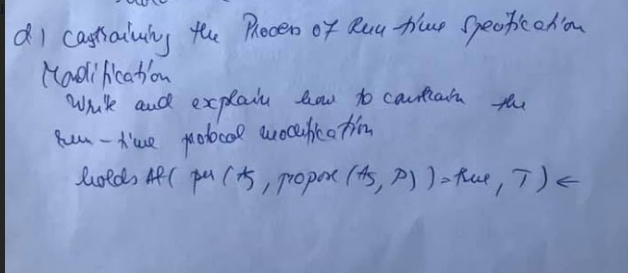 d) Constraining the Process of Run-time Specification
Modification
Write and explain how to constrain the
Run-time protocol modification
holdsAt( per(Ag, propose(Ag, P)) = true, T) ←